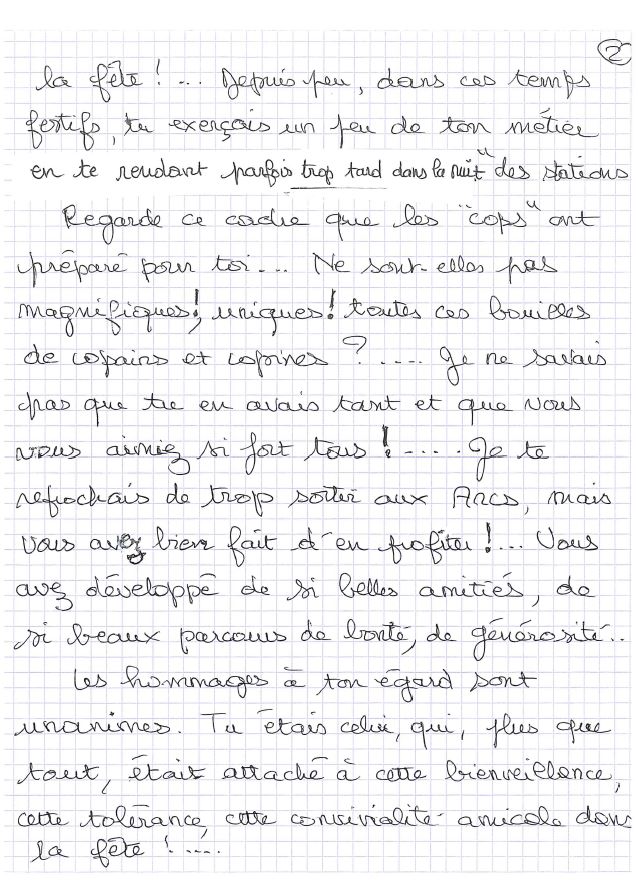 2
la fête ! ... Depuis peu, dans ces temps
festifs, tu exerçais un peu de ton métier
en te rendant parfois trop tard dans la nuit " des stations
Regarde ce cadre que les "cops" ont
préparé pour toi.... Ne sont-elles pas
magnifiques!, uniques! toutes ces bouilles
de copains et copines ? ..... Je ne savais
pas que tu en avais tant et que vous
vous aimiez si fort tous ! ..... Je te
reprochais de trop sortir aux Arcs, mais
vous avez bien fait d'en profiter !... Vous
avez développé de si belles amitiés, de
si beaux parcours de bonté, de générosité..
Les hommages à ton égard sont
unanimes. Tu étais celui, qui, plus que
tout, était attaché à cette bienveillance,
cette tolérance, cette convivialité amicale dans
la fête ! .....